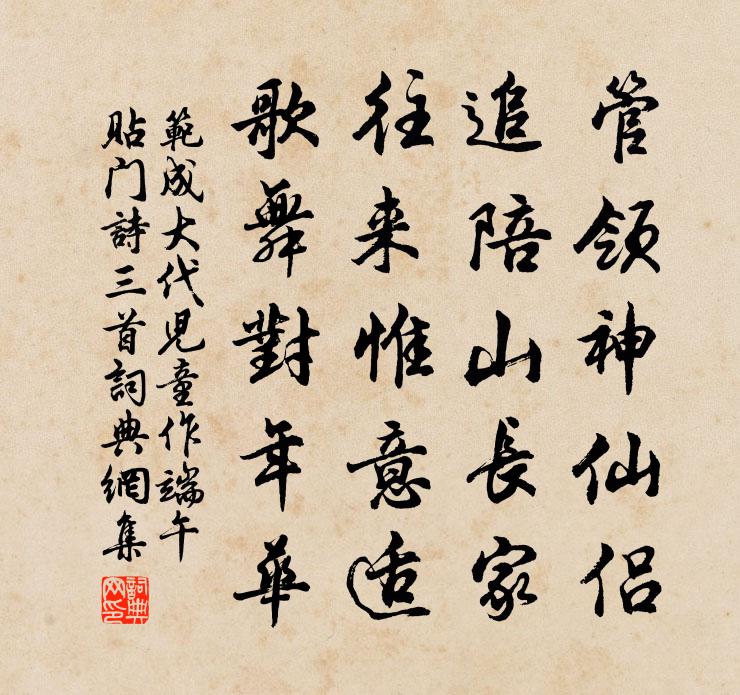 管领神仙侣
追陪山長家
往来惟意适
歌舞對年華
範成大代児童作端午
貼门詩三首詞典網集
詞典網印